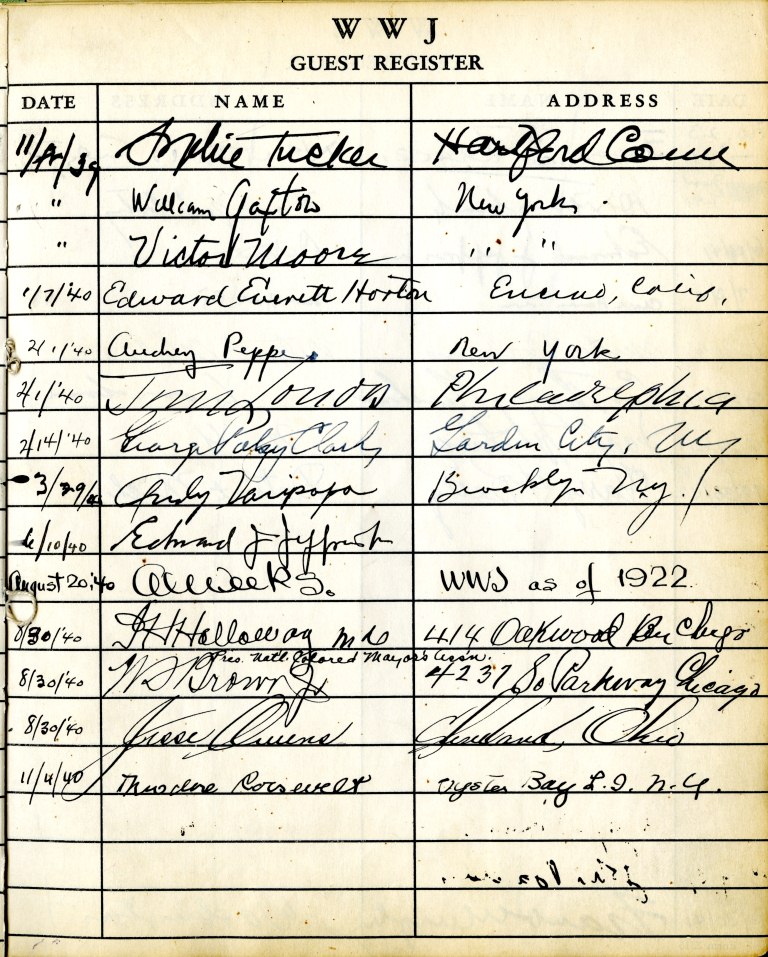 WWJ
GUEST REGISTER
DATE NAME ADDRESS
11/12/39 Sophie Tucker Hartford Conn
" William Gaxton New York.
" Victor Moore " "
1/7/'40 Edward Everett Horton Encino, Calif.
2/1/'40 Audrey Peppe New York
2/1/'40 Philadelphia
2/14/'40 George Clark Garden City, NY
3/29/40 Andy Varipapa Brooklyn N.y.
6/10/40 Edward J Jeffries
August 20,'40 WWJ as of 1922
8/30/'40 JHHolloway MD 414 Oakwood Blv Chgo
Pres. Natl. Colored Mayors Assn.
8/30/'40 WS Brown Jr 4237 So Parkway Chicago
8/30/'40 Jesse Owens Cleveland, Ohio
11/4/40 Theodore Roosevelt Oyster Bay L.I. N.Y.